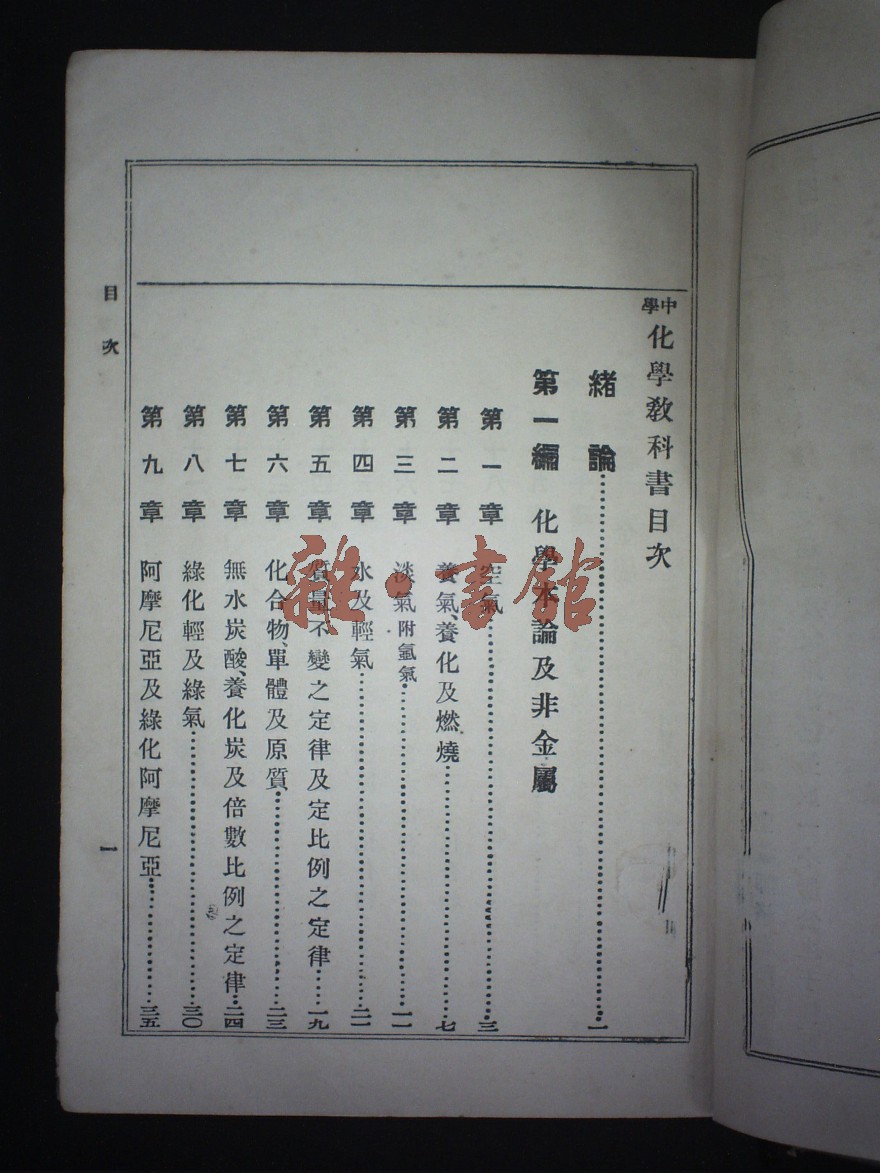 中學化學教科書目次
緒論……一
第一編 化學本論及非金屬
第一章 空氣……三
第二章 養氣、養化及燃燒……七
第三章 淡氣附氬氣……一一
第四章 水及輕氣……一二
第五章 質量不變之定律及定比例之定律……一九
第六章 化合物、單體及原質……二三
第七章 無水炭酸、養化炭及倍數比例之定律……二四
第八章 綠化輕及綠氣……三〇
第九章 阿摩尼亞及綠化阿摩尼亞……三五
目次 一
雜·書館